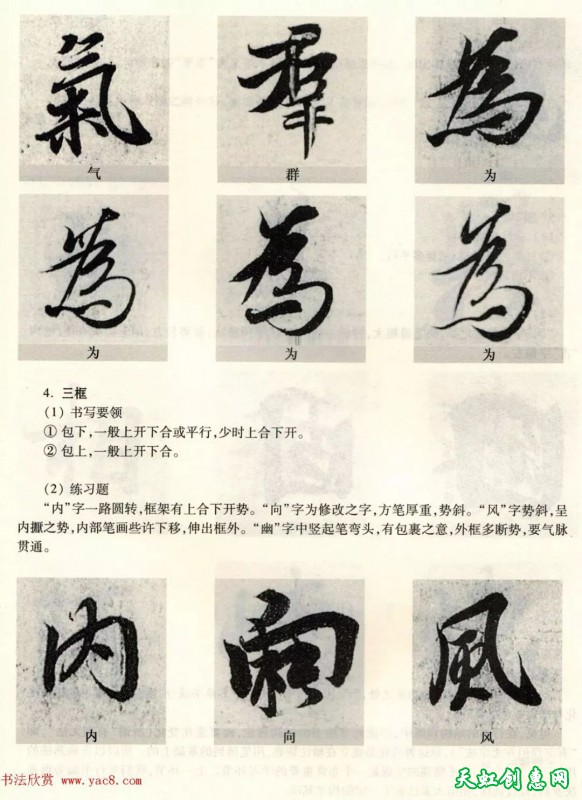 氣 羣 為
气 群 为
為 為 為
为 为 为
4. 三框
(1) 书写要领
① 包下,一般上开下合或平行,少时上合下开。
② 包上,一般上开下合。
(2) 练习题
“内”字一路圆转,框架有上合下开势。“向”字为修改之字,方笔厚重,势斜。“风”字势斜,呈
内擫之势,内部笔画些许下移,伸出框外。“幽”字中竖起笔弯头,有包裹之意,外框多断势,要气脉
贯通。
内 向 風
内 向 风
书法欣赏 www.yac8.com
天虹创意网